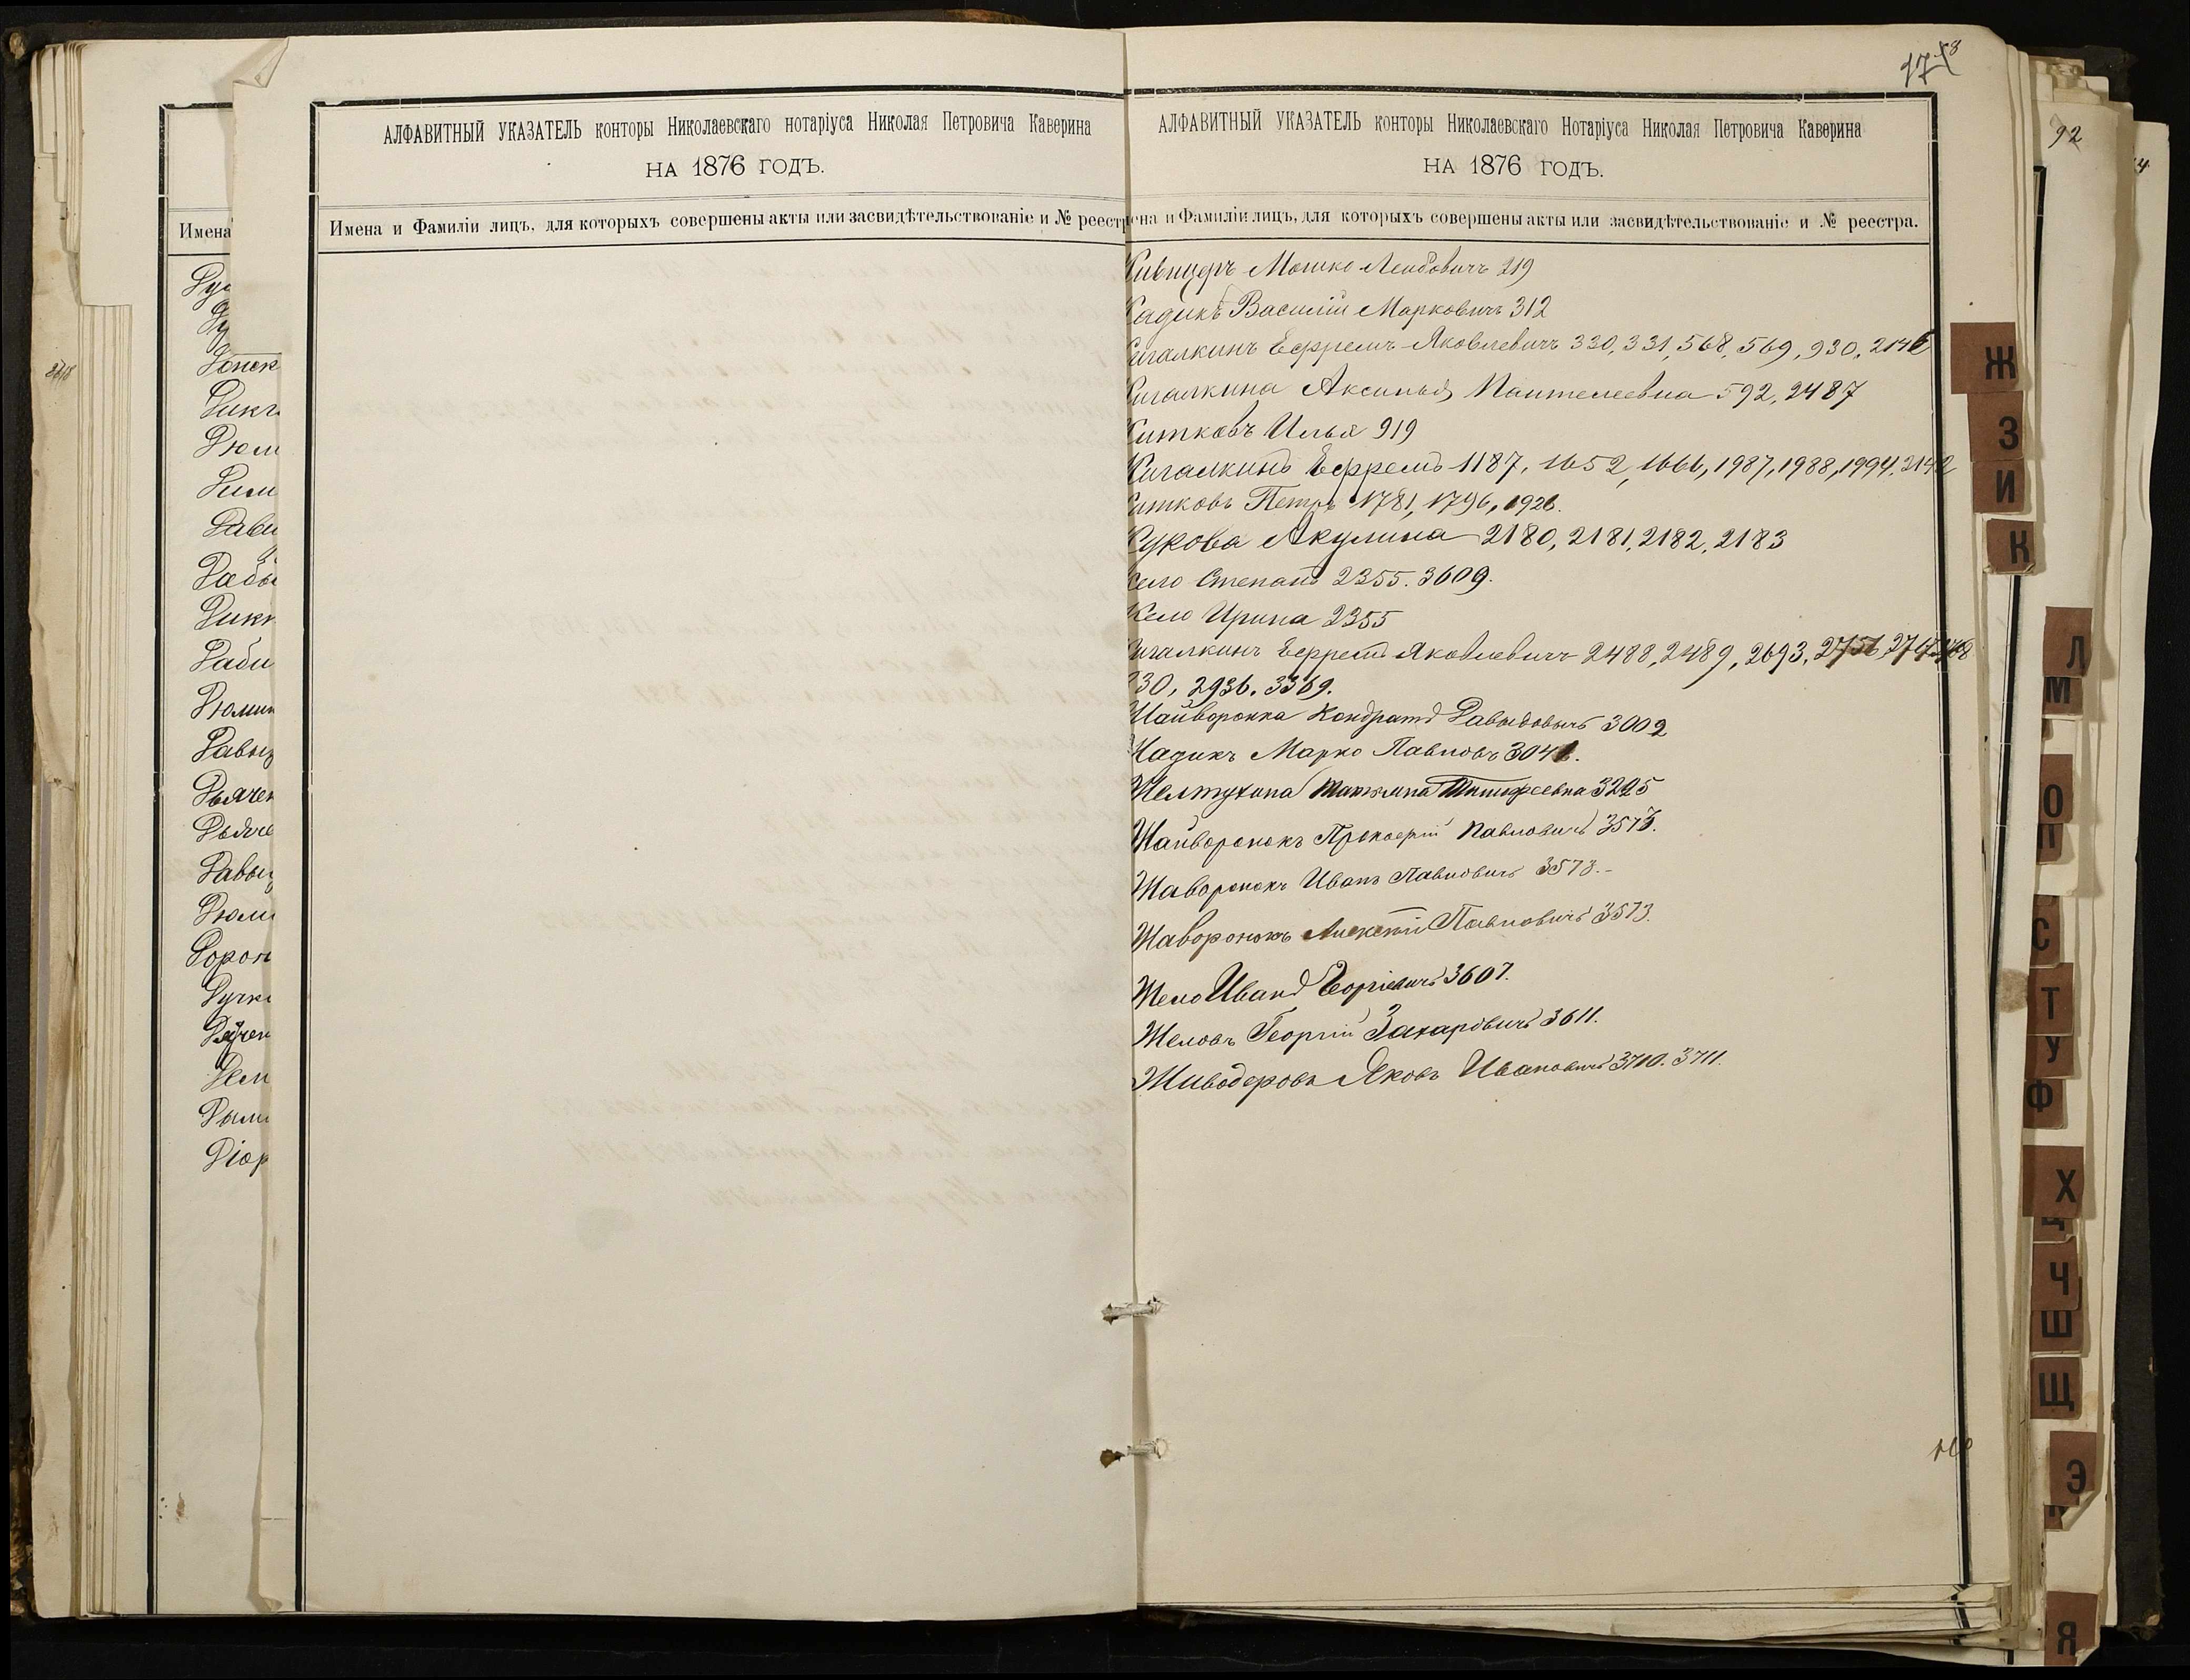 17 18
92
АЛФАВИТНЫЙ УКАЗАТЕЛЬ конторы Николаевскаго нотаріуса Николая Петровича Каверина
НА 1876 ГОДЪ.
Имена и Фамиліи лицъ, для которыхъ совершены акты или засвидѣтельствованіе и № реестр
Имена
Дюм
Дави
Дикк
Даби
Дюмин
Давыд
Дьячен
Дьяче
Давыд
Дюми
Дорон
Дучк
Дем
Діор
АЛФАВИТНЫЙ УКАЗАТЕЛЬ конторы Николаевскаго Нотаріуса Николая Петровича Каверина
НА 1876 ГОДЪ.
ена и Фамиліи лицъ, для которыхъ совершены акты или засвидѣтельствованіе и № реестра.
Живицеръ Мошко Лейбовичъ 219
Жадикъ Василій Марковичъ 312
Жигалкинъ Ефремъ Яковлевичъ 330, 331, 568, 569, 930, 2146
Жигалкина Аксинья Пантелеевна 592, 2487
Житковъ Илья 919
Жигалкинъ Ефремъ 1187, 1652, 1666, 1987, 1988, 1994, 2142
Житковъ Петръ 1781, 1796, 1926.
Жукова Акулина 2180, 2181, 2182, 2183
Жело Степанъ 2355. 3609.
Жело Ирина 2355
Жигалкинъ Ефремъ Яковлевичъ 2488, 2489, 2693, 2756,
30, 2936. 3369.
Жайворонка Кондратъ Давыдовичъ 3002
Жадикъ Марко Павловъ
Желтухина Татьяна Тимофеевна 3225
Жайворонокъ Прокофій Павловичъ 3573.
Жаворонокъ Иванъ Павловичъ 3573.-
Жаворонокъ Алексѣй Павловичъ 3573.
Жело Иванъ Георгіевичъ 3607.
Желовъ Георгій Захаровичъ 3611.
Живодеровъ Яковъ Ивановичъ 3710. 3711.
Ж
З
И
К
Л
М
О
П
С
Т
У
Ф
Х
Ц
Ч
Ш
Щ
Э
Я